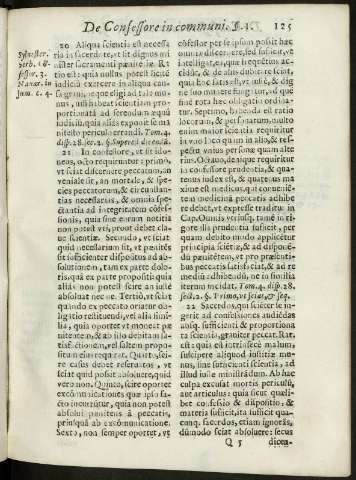 De Confessore in communi. §. I. 125
20 Aliqua scientia est necessa
ria in sacerdote, vt sit dignus mi
nister sacramenti pænitētiæ. Ra
tio est: quia nullus potest licitè
iudiciũ exercere in aliqua cau-
sa grani, neque eligi ad tale mu-
nus, nisi habeat scientiam pro-
portionatã ad seruendum æquũ
iudiciũ, quia aliàs exponit se ma
nifesto periculo errandi. Tom. 4.
disp. 28. sect. 2. §. Superest dicendũ.
Syluester.
verb. cō-
fessor. 3.
Nauar. in
sum. c. 4.
21 In confessore, vt sit ido
neus, octo requiruntur: primo,
vt sciat discernere peccatum, an
veniale sit, an mortale, & spe-
cies peccatorum, & circunstan-
tias necessarias, & omnia spe-
ctantia ad integritatem cōfes-
sionis, quia sine eorum notitia
non potest vti, prout debet cla-
ue scientiæ. Secundo, vt sciat
quid necessarium sit, vt pænitēs
sit sufficienter dispositus ad ab-
solutionem, tam ex parte dolo-
ris, quã ex parte propositi: quia
aliàs non potest scire an iustè
absoluat nec ne. Tertio, vt sciat
quando ex parte obseruanda ob
ligatio restituendi, vel alia simi-
lia, quia oportet vt moneat pæ
nitentē, & ab illo debitam sa-
tisfactionem, vel saltem proposi-
tum eius requirat. Quarto, sci-
re casus debet reseruatos, vt
sciat quid possit absoluere, quid
vero non. Quinto, scire oportet
excōmunicationes quæ ipso fa-
cto incurrũtur, quia non potest
absolui pænitens à peccatis,
prius quã ab excōmunicatione.
Sexto, non semper oportet, vt
cōfessor per se ipsum possit hæc
omnia discernere, necesse est, vt
intelligat, ea, quæ frequētius ac
cidũt, & de alijs dubitare sciat,
quia hoc satis est ad vtendũ cla
ue scientiæ, & ad id, ad quod hoc
fine rota hæc obligatio ordina-
tur. Septimo, habenda est ratio
locorum, & personarum, multo
enim maior scientia requiritur
in vno loco quam in alio, & res-
pectu vnius personæ quam alte
rius. Octauo, denique requiritur
in confessore prudentia, & qua-
tenus iudex est, & quatenus ma
ximè est medicus, qui conueniē-
tem medicinã peccatis adhibe
re debet, vt expresse traditur in
Cap. Omnis vtriusq; tamē in ri-
gore illa prudentia sufficit, per
quam debito modo applicētur
principia sciētiæ, & ad disponē-
dũ pænitentem, vt pro præceden-
tibus peccatis satisfaciat, & ad re
mediũ adhibendũ, ne in similia
iterum incidat. Tom. 4. disp. 28.
sect. 2. §. Primo, vt sciat, & seq.
22 Sacerdos, qui scienter in-
gerit ad confessiones audiēdas
absq; sufficienti & proportiona
ta scientia, grauiter peccat. Rat.
est: quia est intrinsecè malum,
suscipere aliquod iustitiæ mu-
nus, sine sufficienti scientia, ad
illud iustè ministrãdum. Ab hac
culpa excusat mortis periculũ,
aut articulus: quia sicut quæli-
bet confessio & dispositio, &
materia sufficit, ita sufficit quæ-
cunq; sacerdos, etiam ignorãs,
dũmodo sciat absoluere: secus
Q 5 dicen-